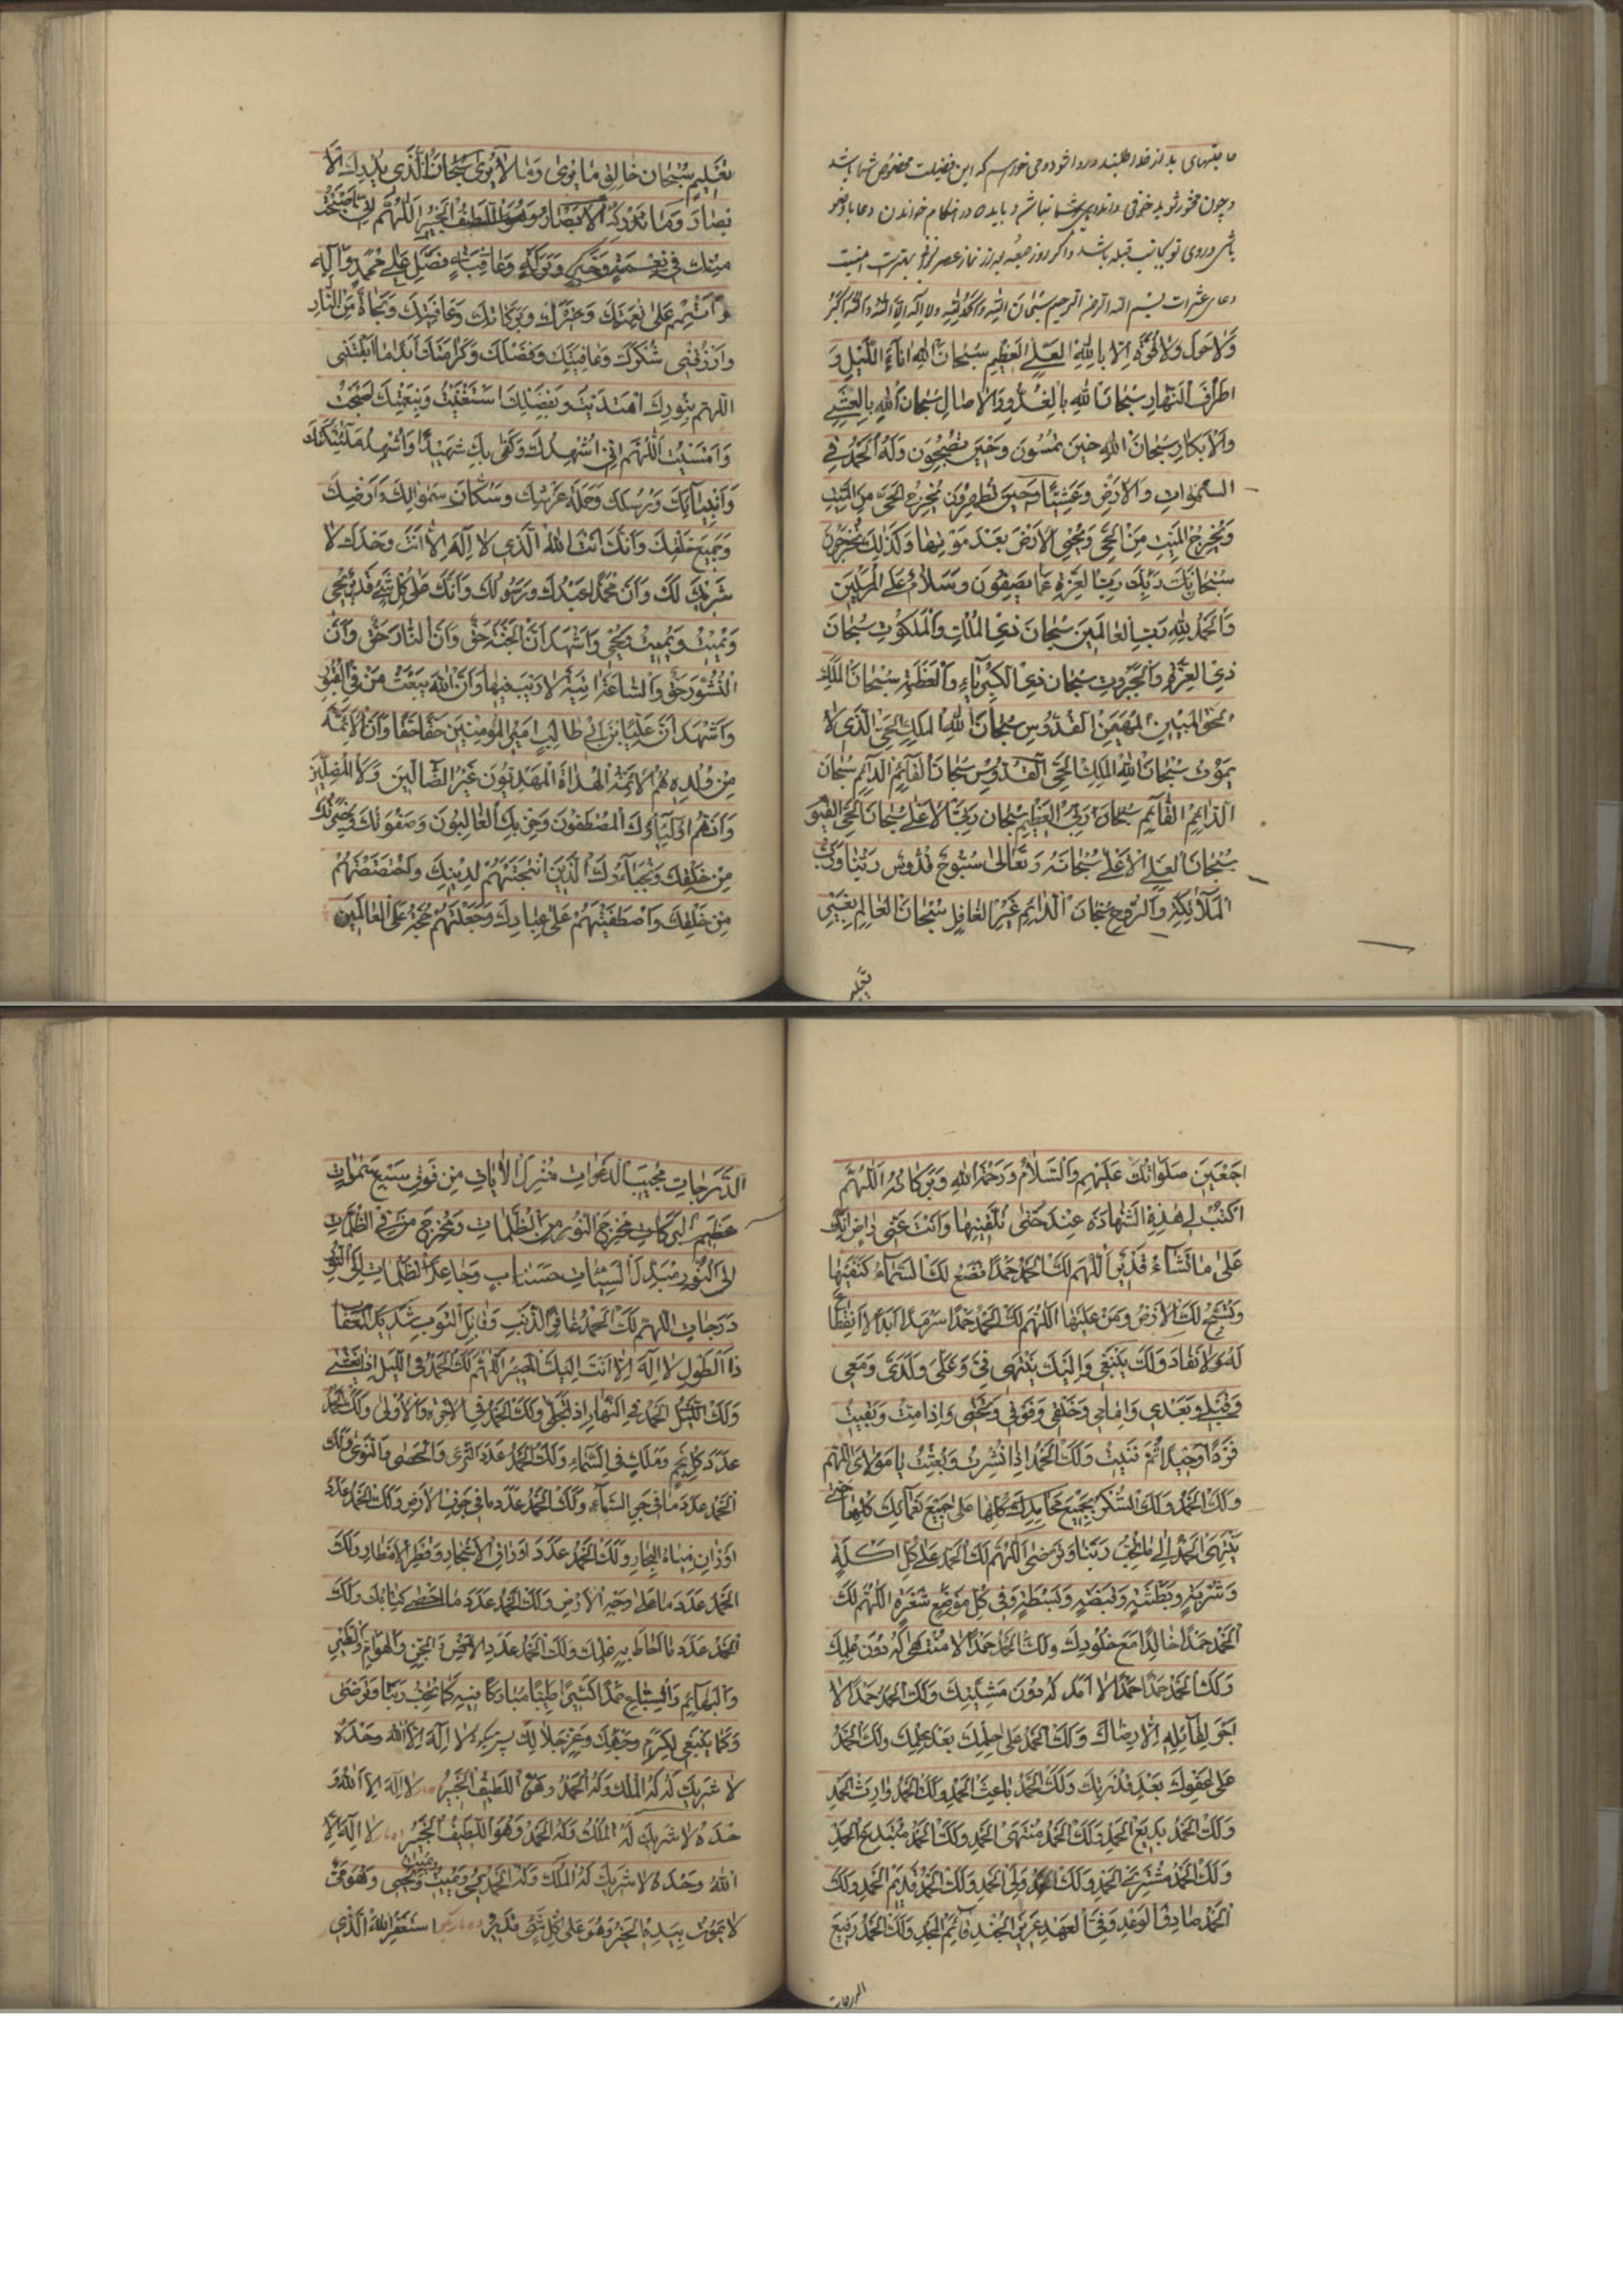 دعاء عشرات بسم الله الرحمن الرحيم سُبْحَانَ اللهِ وَالْحَمْدُ لِلهِ وَلَا اِلٰهَ اِلَّا اللهُ وَاللهُ اَكْبَرُ
وَلَا حَوْلَ وَلَا قُوَّةَ اِلَّا بِاللهِ الْعَلِىِّ الْعَظِيمِ سُبْحَانَ اللهِ اٰنَاءَ اللَّيْلِ وَ
اَطْرَافَ النَّهَارِ سُبْحَانَ اللهِ بِالْغُدُوِّ وَالْاٰصَالِ سُبْحَانَ اللهِ بِالْعَشِىِّ
وَالْاِبْكَارِ سُبْحَانَ اللهِ حِينَ تُمْسُونَ وَحِينَ تُصْبِحُونَ وَلَهُ الْحَمْدُ فِى
السَّمٰوَاتِ وَالْاَرْضِ وَعَشِيًّا وَحِينَ تُظْهِرُونَ يُخْرِجُ الْحَىَّ مِنَ الْمَيِّتِ
وَيُخْرِجُ الْمَيِّتَ مِنَ الْحَىِّ وَيُحْيِى الْاَرْضَ بَعْدَ مَوْتِهَا وَكَذٰلِكَ تُخْرَجُونَ
سُبْحَانَ رَبِّكَ رَبِّ الْعِزَّةِ عَمَّا يَصِفُونَ وَسَلَامٌ عَلَى الْمُرْسَلِينَ
وَالْحَمْدُ لِلهِ رَبِّ الْعَالَمِينَ سُبْحَانَ ذِى الْمُلْكِ وَالْمَلَكُوتِ سُبْحَانَ
ذِى الْعِزَّةِ وَالْجَبَرُوتِ سُبْحَانَ ذِى الْكِبْرِيَاءِ وَالْعَظَمَةِ سُبْحَانَ الْمَلِكِ
الْحَقِّ الْمُبِينِ الْمُهَيْمِنِ الْقُدُّوسِ سُبْحَانَ اللهِ الْمَلِكِ الْحَىِّ الَّذِى لَا
يَمُوتُ سُبْحَانَ اللهِ الْمَلِكِ الْحَىِّ الْقُدُّوسِ سُبْحَانَ الْقَائِمِ الدَّائِمِ سُبْحَانَ
الدَّائِمِ الْقَائِمِ سُبْحَانَ رَبِّىَ الْعَظِيمِ سُبْحَانَ رَبِّىَ الْاَعْلٰى سُبْحَانَ الْحَىِّ الْقَيُّومِ
سُبْحَانَ الْعَلِىِّ الْاَعْلٰى سُبْحَانَهُ وَتَعَالٰى سُبُّوحٌ قُدُّوسٌ رَبُّنَا وَرَبُّ
الْمَلَائِكَةِ وَالرُّوحِ سُبْحَانَ الدَّائِمِ غَيْرِ الْغَافِلِ سُبْحَانَ الْعَالِمِ بِغَيْرِ
تعلیم
تَعْلِيمٍ سُبْحَانَ خَالِقِ مَا يُرٰى وَمَا لَا يُرٰى سُبْحَانَ الَّذِى يُدْرِكُ الْاَ
بْصَارَ وَمَا تُدْرِكُهُ الْاَبْصَارُ وَهُوَ اللَّطِيفُ الْخَبِيرُ اَللّٰهُمَّ اِنِّى اَصْبَحْتُ
مِنْكَ فِى نِعْمَةٍ وَخَيْرٍ وَبَرَكَةٍ وَعَافِيَةٍ فَصَلِّ عَلٰى مُحَمَّدٍ وَاٰلِهِ
وَاَتْمِمْ عَلَىَّ نِعْمَتَكَ وَخَيْرَكَ وَبَرَكَاتِكَ وَعَافِيَتَكَ وَنَجَاةً مِنَ النَّارِ
وَارْزُقْنِى شُكْرَكَ وَعَافِيَتَكَ وَفَضْلَكَ وَكَرَامَتَكَ اَبَدًا مَا اَبْقَيْتَنِى
اَللّٰهُمَّ بِنُورِكَ اهْتَدَيْتُ وَبِفَضْلِكَ اسْتَغْنَيْتُ وَبِنِعْمَتِكَ اَصْبَحْتُ
وَاَمْسَيْتُ اَللّٰهُمَّ اِنِّى اُشْهِدُكَ وَكَفٰى بِكَ شَهِيدًا وَاُشْهِدُ مَلٰئِكَتَكَ
وَاَنْبِيَائَكَ وَرُسُلَكَ وَحَمَلَةَ عَرْشِكَ وَسُكَّانَ سَمٰوَاتِكَ وَاَرْضِكَ
وَجَمِيعَ خَلْقِكَ وَاَنَّكَ اَنْتَ اللهُ الَّذِى لَا اِلٰهَ اِلَّا اَنْتَ وَحْدَكَ لَا
شَرِيكَ لَكَ وَاَنَّ مُحَمَّدًا عَبْدُكَ وَرَسُولُكَ وَاَنَّكَ عَلٰى كُلِّ شَىْءٍ قَدِيرٌ تُحْيِى
وَتُمِيتُ وَتُمِيتُ وَتُحْيِى وَاَشْهَدُ اَنَّ الْجَنَّةَ حَقٌّ وَاَنَّ النَّارَ حَقٌّ وَاَنَّ
النُّشُورَ حَقٌّ وَالسَّاعَةَ اٰتِيَةٌ لَا رَيْبَ فِيهَا وَاَنَّ اللهَ يَبْعَثُ مَنْ فِى الْقُبُورِ
وَاَشْهَدُ اَنَّ عَلِىَّ بْنَ اَبِى طَالِبٍ اَمِيرُ الْمُؤْمِنِينَ حَقًّا حَقًّا وَاَنَّ الْاَئِمَّةَ
مِنْ وُلْدِهِ هُمُ الْاَئِمَّةُ الْهُدَاةُ الْمَهْدِيُّونَ غَيْرُ الضَّالِّينَ وَلَا الْمُضِلِّينَ
وَاَنَّهُمْ اَوْلِيَاؤُكَ الْمُصْطَفَوْنَ وَحِزْبُكَ الْغَالِبُونَ وَصَفْوَتُكَ وَخِيَرَتُكَ
مِنْ خَلْقِكَ وَنُجَبَاؤُكَ الَّذِينَ انْتَجَبْتَهُمْ لِدِينِكَ وَاخْتَصَصْتَهُمْ
مِنْ خَلْقِكَ وَاصْطَفَيْتَهُمْ عَلٰى عِبَادِكَ وَجَعَلْتَهُمْ حُجَّةً عَلَى الْعَالَمِينَ
اَجْمَعِينَ صَلَوَاتُكَ عَلَيْهِمْ وَالسَّلَامُ وَرَحْمَةُ اللهِ وَبَرَكَاتُهُ اَللّٰهُمَّ
اكْتُبْ لِى هٰذِهِ الشَّهَادَةَ عِنْدَكَ حَتّٰى تُلَقِّنِيهَا وَاَنْتَ عَنِّى رَاضٍ اِنَّكَ
عَلٰى مَا تَشَاءُ قَدِيرٌ اَللّٰهُمَّ لَكَ الْحَمْدُ حَمْدًا تَضَعُ لَكَ السَّمَاءُ كَنَفَيْهَا
وَتُسَبِّحُ لَكَ الْاَرْضُ وَمَنْ عَلَيْهَا اَللّٰهُمَّ لَكَ الْحَمْدُ حَمْدًا سَرْمَدًا اَبَدًا لَا انْقِطَاعَ
لَهُ وَلَا نَفَادَ وَلَكَ يَنْبَغِى وَاِلَيْكَ يَنْتَهِى فِىَّ وَعَلَىَّ وَلَدَىَّ وَمَعِى
وَقَبْلِى وَبَعْدِى وَاَمَامِى وَخَلْفِى وَفَوْقِى وَتَحْتِى وَاِذَا مِتُّ وَبَقِيتُ
فَرْدًا وَحِيدًا ثُمَّ فَنِيتُ وَلَكَ الْحَمْدُ اِذَا نُشِرْتُ وَبُعِثْتُ يَا مَوْلَاىَ اَللّٰهُمَّ
وَلَكَ الْحَمْدُ وَلَكَ الشُّكْرُ بِجَمِيعِ مَحَامِدِكَ كُلِّهَا عَلٰى جَمِيعِ نَعْمَائِكَ كُلِّهَا حَتّٰى
يَنْتَهِىَ الْحَمْدُ اِلٰى مَا تُحِبُّ رَبَّنَا وَتَرْضٰى اَللّٰهُمَّ لَكَ الْحَمْدُ عَلٰى كُلِّ اَكْلَةٍ
وَشَرْبَةٍ وَبَطْشَةٍ وَقَبْضَةٍ وَبَسْطَةٍ وَفِى كُلِّ مَوْضِعِ شَعْرَةٍ اَللّٰهُمَّ لَكَ
الْحَمْدُ حَمْدًا خَالِدًا مَعَ خُلُودِكَ وَلَكَ الْحَمْدُ حَمْدًا لَا مُنْتَهٰى لَهُ دُونَ عِلْمِكَ
وَلَكَ الْحَمْدُ حَمْدًا لَا اَمَدَ لَهُ دُونَ مَشِيَّتِكَ وَلَكَ الْحَمْدُ حَمْدًا لَا
اَجْرَ لِقَائِلِهِ اِلَّا رِضَاكَ وَلَكَ الْحَمْدُ عَلٰى حِلْمِكَ بَعْدَ عِلْمِكَ وَلَكَ الْحَمْدُ
عَلٰى عَفْوِكَ بَعْدَ قُدْرَتِكَ وَلَكَ الْحَمْدُ بَاعِثَ الْحَمْدِ وَلَكَ الْحَمْدُ وَارِثَ الْحَمْدِ
وَلَكَ الْحَمْدُ بَدِيعَ الْحَمْدِ وَلَكَ الْحَمْدُ مُنْتَهَى الْحَمْدِ وَلَكَ الْحَمْدُ مُبْتَدِعَ الْحَمْدِ
وَلَكَ الْحَمْدُ مُشْتَرِىَ الْحَمْدِ وَلَكَ الْحَمْدُ وَلِىَّ الْحَمْدِ وَلَكَ الْحَمْدُ قَدِيمَ الْحَمْدِ وَلَكَ
الْحَمْدُ صَادِقَ الْوَعْدِ وَفِىَّ الْعَهْدِ عَزِيزَ الْجُنْدِ قَائِمَ الْمَجْدِ وَلَكَ الْحَمْدُ رَفِيعَ
الدرجات
الدَّرَجَاتِ مُجِيبَ الدَّعَوَاتِ مُنْزِلَ الْاٰيَاتِ مِنْ فَوْقِ سَبْعِ سَمٰوَاتٍ
عَظِيمَ الْبَرَكَاتِ مُخْرِجَ النُّورِ مِنَ الظُّلُمَاتِ وَمُخْرِجَ مَنْ فِى الظُّلُمَاتِ
اِلَى النُّورِ مُبَدِّلَ السَّيِّئَاتِ حَسَنَاتٍ وَجَاعِلَ الظُّلُمَاتِ اِلَى النُّورِ
دَرَجَاتٍ اَللّٰهُمَّ لَكَ الْحَمْدُ غَافِرَ الذَّنْبِ وَقَابِلَ التَّوْبِ شَدِيدَ الْعِقَابِ
ذَا الطَّوْلِ لَا اِلٰهَ اِلَّا اَنْتَ اِلَيْكَ الْمَصِيرُ اَللّٰهُمَّ لَكَ الْحَمْدُ فِى اللَّيْلِ اِذَا يَغْشٰى
وَلَكَ الْحَمْدُ فِى النَّهَارِ اِذَا تَجَلّٰى وَلَكَ الْحَمْدُ فِى الْاٰخِرَةِ وَالْاُولٰى وَلَكَ الْحَمْدُ
عَدَدَ كُلِّ نَجْمٍ وَمَلَكٍ فِى السَّمَاءِ وَلَكَ الْحَمْدُ عَدَدَ الثَّرٰى وَالْحَصٰى وَالنَّوٰى وَلَكَ
الْحَمْدُ عَدَدَ مَا فِى جَوِّ السَّمَاءِ وَلَكَ الْحَمْدُ عَدَدَ مَا فِى جَوْفِ الْاَرْضِ وَلَكَ الْحَمْدُ عَدَدَ
اَوْزَانِ مِيَاهِ الْبِحَارِ وَلَكَ الْحَمْدُ عَدَدَ اَوْرَاقِ الْاَشْجَارِ وَقَطْرِ الْاَمْطَارِ وَلَكَ
الْحَمْدُ عَدَدَ مَا عَلٰى وَجْهِ الْاَرْضِ وَلَكَ الْحَمْدُ عَدَدَ مَا اَحْصٰى كِتَابُكَ وَلَكَ
الْحَمْدُ عَدَدَ مَا اَحَاطَ بِهِ عِلْمُكَ وَلَكَ الْحَمْدُ عَدَدَ الْاِنْسِ وَالْجِنِّ وَالْهَوَامِّ وَالطَّيْرِ
وَالْبَهَائِمِ وَالسِّبَاعِ حَمْدًا كَثِيرًا طَيِّبًا مُبَارَكًا فِيهِ كَمَا تُحِبُّ رَبَّنَا وَتَرْضٰى
وَكَمَا يَنْبَغِى لِكَرَمِ وَجْهِكَ وَعِزِّ جَلَالِكَ لَا اِلٰهَ اِلَّا اللهُ وَحْدَهُ
لَا شَرِيكَ لَهُ لَهُ الْمُلْكُ وَلَهُ الْحَمْدُ وَهُوَ اللَّطِيفُ الْخَبِيرُ لَا اِلٰهَ اِلَّا اللهُ وَ
حْدَهُ لَا شَرِيكَ لَهُ لَهُ الْمُلْكُ وَلَهُ الْحَمْدُ وَهُوَ اللَّطِيفُ الْخَبِيرُ لَا اِلٰهَ اِلَّا
اللهُ وَحْدَهُ لَا شَرِيكَ لَهُ لَهُ الْمُلْكُ وَلَهُ الْحَمْدُ يُحْيِى وَيُمِيتُ وَيُمِيتُ وَيُحْيِى وَهُوَ حَىٌّ
لَا يَمُوتُ بِيَدِهِ الْخَيْرُ وَهُوَ عَلٰى كُلِّ شَىْءٍ قَدِيرٌ اَسْتَغْفِرُ اللهَ الَّذِى